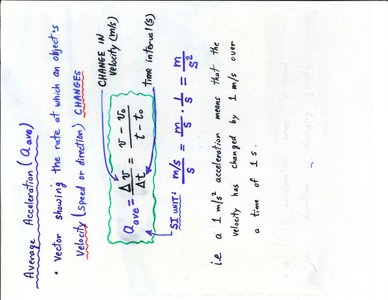 Average Acceleration (a ave)
• Vector showing the rate at which an object's
velocity (speed or direction) CHANGES
CHANGE IN
velocity (m/s)
a ave = Δv/Δt = (v - v₀)/(t - t₀)
time interval (s)
SI UNIT: (m/s)/s = m/s · 1/s = m/s²
i.e. a 1 m/s² acceleration means that the
velocity has changed by 1 m/s over
a time of 1 s.